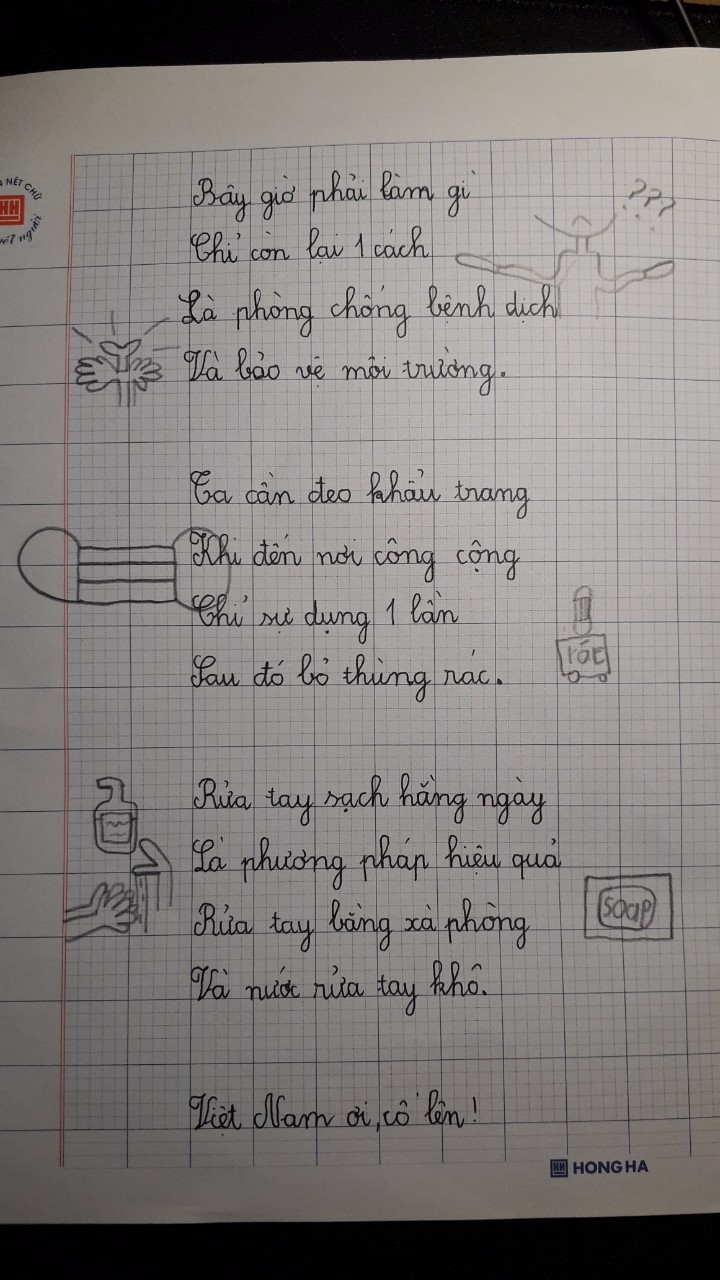 NÉT CHỮ
HH
NẾT NGƯỜI
Bây giờ phải làm gì
???
Chỉ còn lại 1 cách
Là phòng chống bệnh dịch
Và bảo vệ môi trường.
Ta cần đeo khẩu trang
Khi đến nơi công cộng
Chỉ sử dụng 1 lần
rác
Sau đó bỏ thùng rác.
Rửa tay sạch hằng ngày
Là phương pháp hiệu quả
soap
Rửa tay bằng xà phòng
Và nước rửa tay khô.
Việt Nam ơi, cố lên!
HH HONG HA